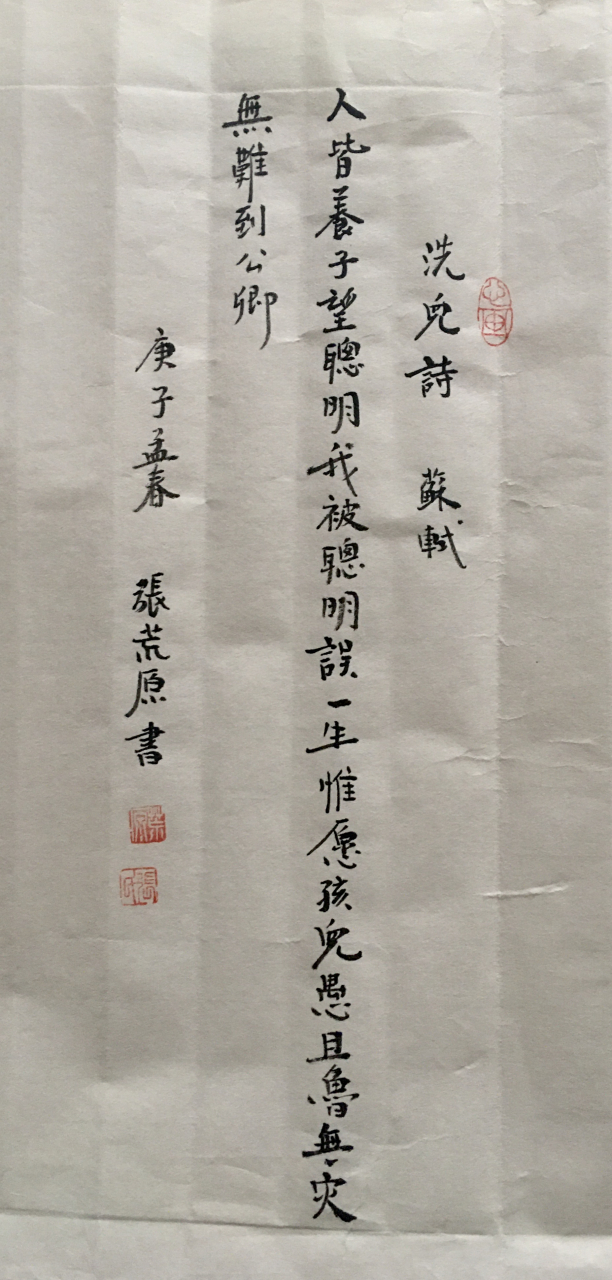 洗兒詩 蘇軾
人皆養子望聰明我被聰明誤一生惟愿孩兒愚且魯無灾
無難到公卿
庚子孟春 張荒原書